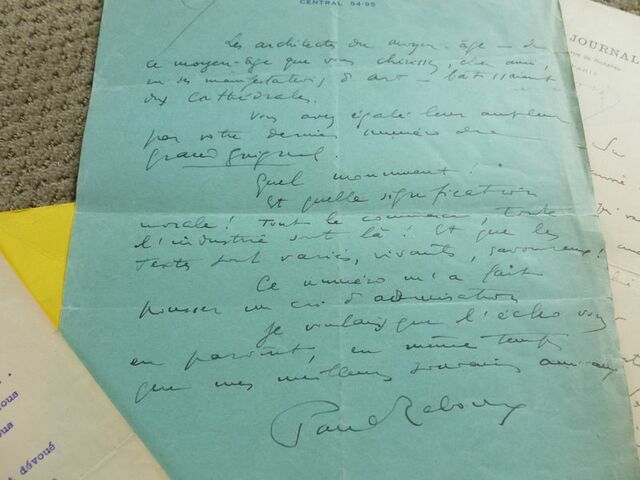 CENTRAL 54-95
Les architectes du moyen-âge — de
ce moyen-âge que vous chérissez, cher ami,
en ses manifestations d'art — bâtissaient
des cathédrales.
Vous avez égalé leur ampleur
par votre dernier numéro du
grand guignol.
Quel monument !
Et quelle signification
morale ! Tout le commerce, toute
l'industrie sont là ! Et que les
textes sont variés, vivants, savoureux !
Ce numéro m'a fait
pousser un cri d'admiration
Je voulais que l'écho vous
en parvînt, en même temps
que mes meilleurs souvenirs amicaux
Paul Reboux
JOURNAL
PARIS
dévoué